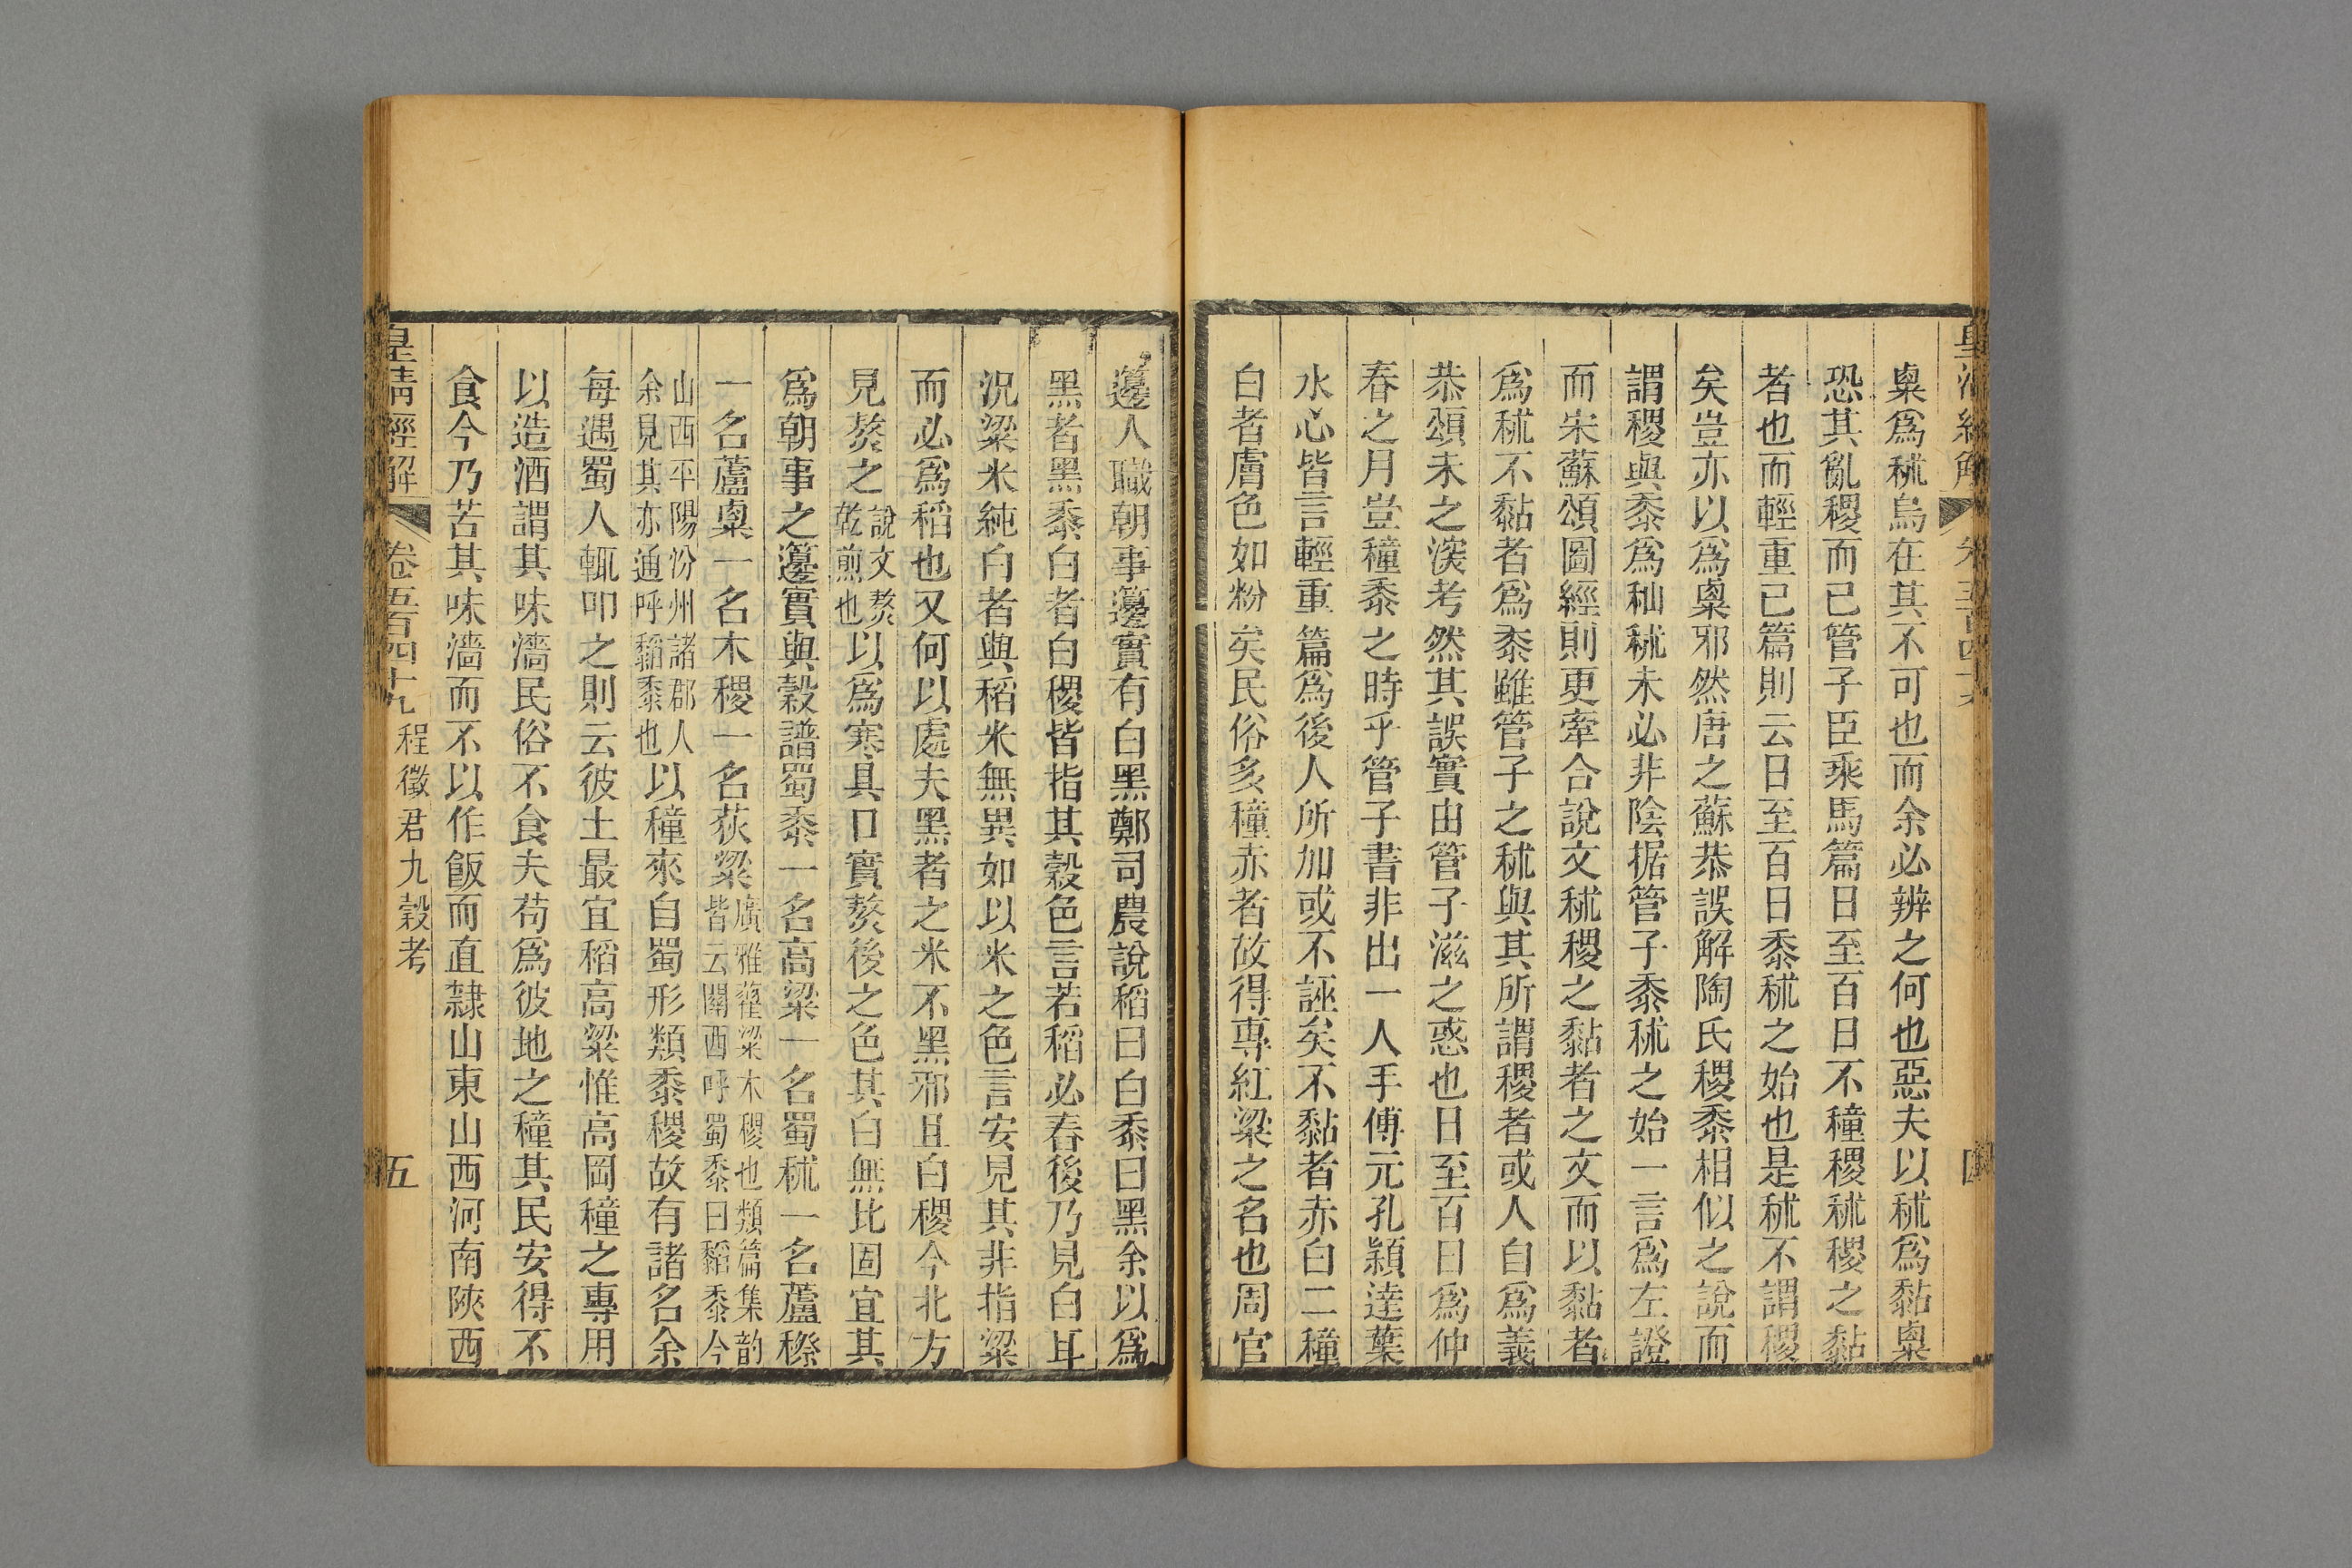 粟爲秫烏在其不可也而余必辨之何也惡夫以秫爲黏粟
恐其亂稷而已管子臣乘馬篇日至百日不穜稷秫稷之黏
者也而輕重己篇則云日至百日黍秫之始也是秫不謂稷
矣豈亦以爲粟邪然唐之蘇恭誤解陶氏稷黍相似之說而
謂稷與黍爲秈秫未必非陰据管子黍秫之始一言爲左證
而宋蘇頌圖經則更牽合說文秫稷之黏者之文而以黏者
爲秫不黏者爲黍雖管子之秫與其所謂稷者或人自爲義
恭頌未之深考然其誤實由管子滋之惑也日至百日爲仲
春之月豈穜黍之時乎管子書非出一人手傅元孔穎達葉
水心皆言輕重篇爲後人所加或不誣矣不黏者赤白二穜
白者膚色如粉矣民俗多穜赤者故得專紅粱之名也周官
籩人職朝事籩實有白黑鄭司農說稻曰白黍曰黑余以爲
黑者黑黍白者白稷皆指其穀色言若稻必舂後乃見白耳
況粱米純白者與稻米無異如以米之色言安見其非指粱
而必爲稻也又何以處夫黑者之米不黑邪且白稷今北方
見熬之說文熬乾煎也以爲寒具口實熬後之色其白無比固宜其
爲朝事之籩實與穀譜蜀黍一名高粱一名蜀秫一名蘆穄
一名蘆粟一名木稷一名荻粱廣雅藋粱木稷也類篇集韵皆云關西呼蜀黍曰䅳黍今
山西平陽汾州諸郡人余見其亦通呼䅳黍也以穜來自蜀形類黍稷故有諸名余
每遇蜀人輒叩之則云彼土最宜稻高粱惟高岡穜之專用
以造酒謂其味濇民俗不食夫苟爲彼地之穜其民安得不
食今乃苦其味濇而不以作飯而直隸山東山西河南陝西
皇清經解 卷五百四十九 程徵君九穀考 五